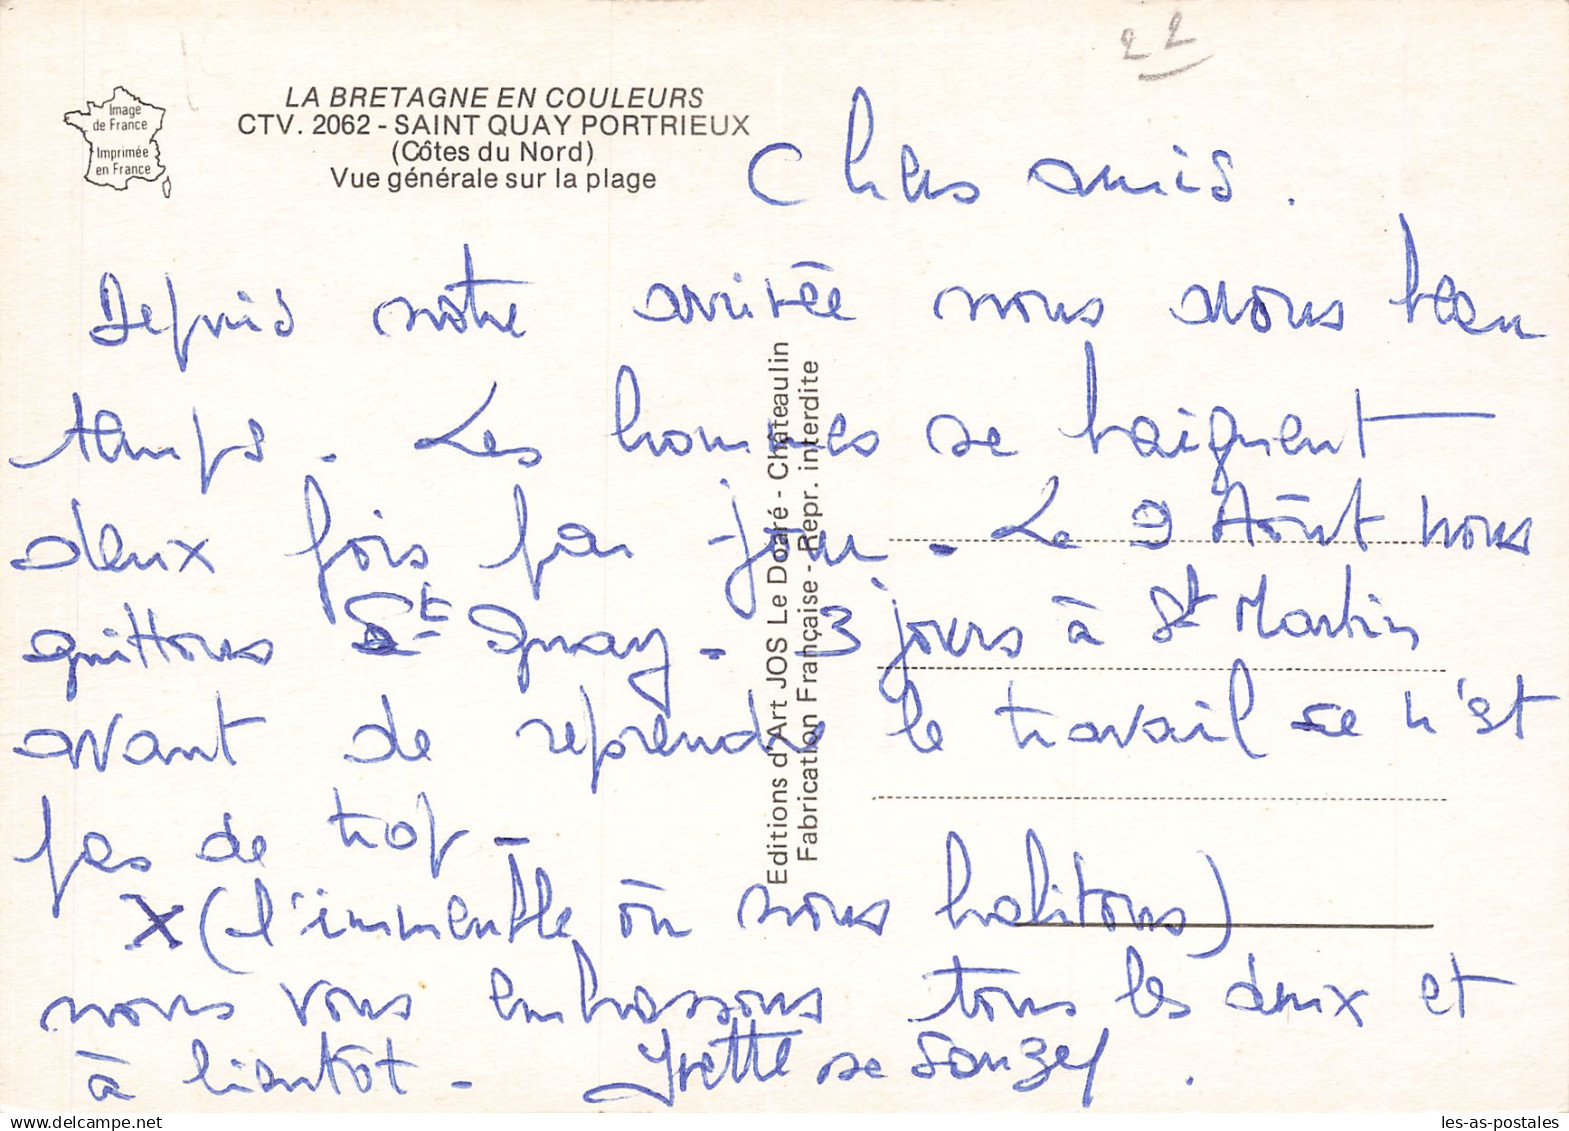 22
Image
de France
Imprimée
en France
LA BRETAGNE EN COULEURS
CTV. 2062 - SAINT QUAY PORTRIEUX
(Côtes du Nord)
Vue générale sur la plage
Chers amis.
Depuis notre arrivée nous avons beau
temps. Les hommes se baignent
deux fois par jour. Le 9 Août nous
quittons St Quay. 3 jours à St Martin
avant de reprendre le travail ce n'est
pas de trop -
X (l'immeuble où nous habitons)
nous vous embrassons tous les deux et
à bientôt - Yvette
Editions d'Art JOS Le Doaré - Châteaulin
Fabrication Française - Repr. interdite
les-as-postales